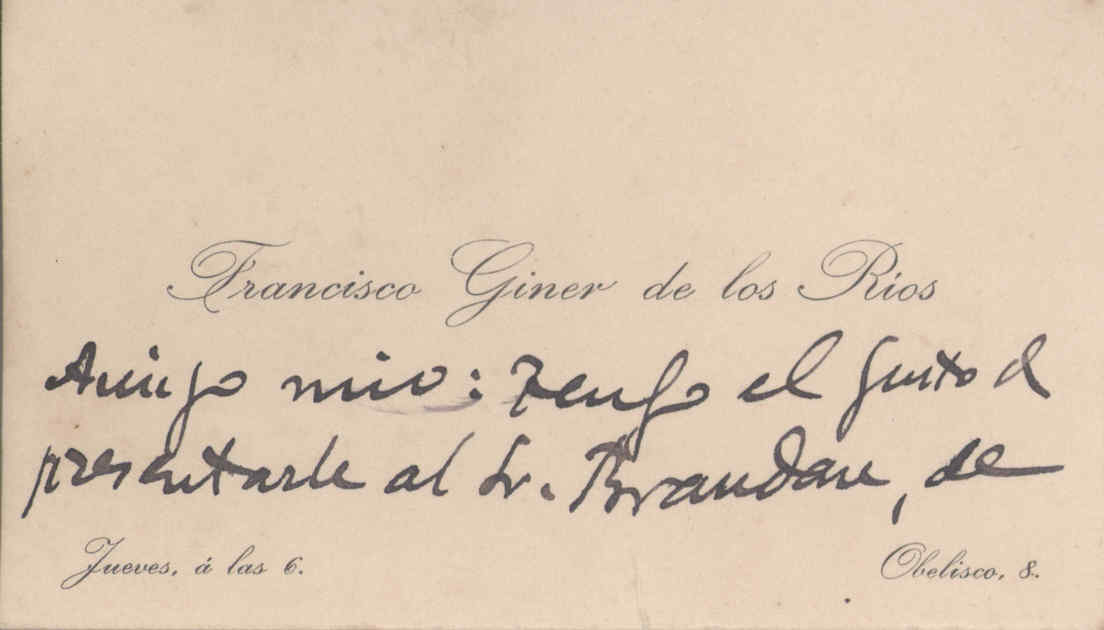 Francisco Giner de los Ríos
Amigo mio: Tengo el gusto d
presentarle al Sr. Brandare, de
Jueves, á las 6.
Obelisco, 8.